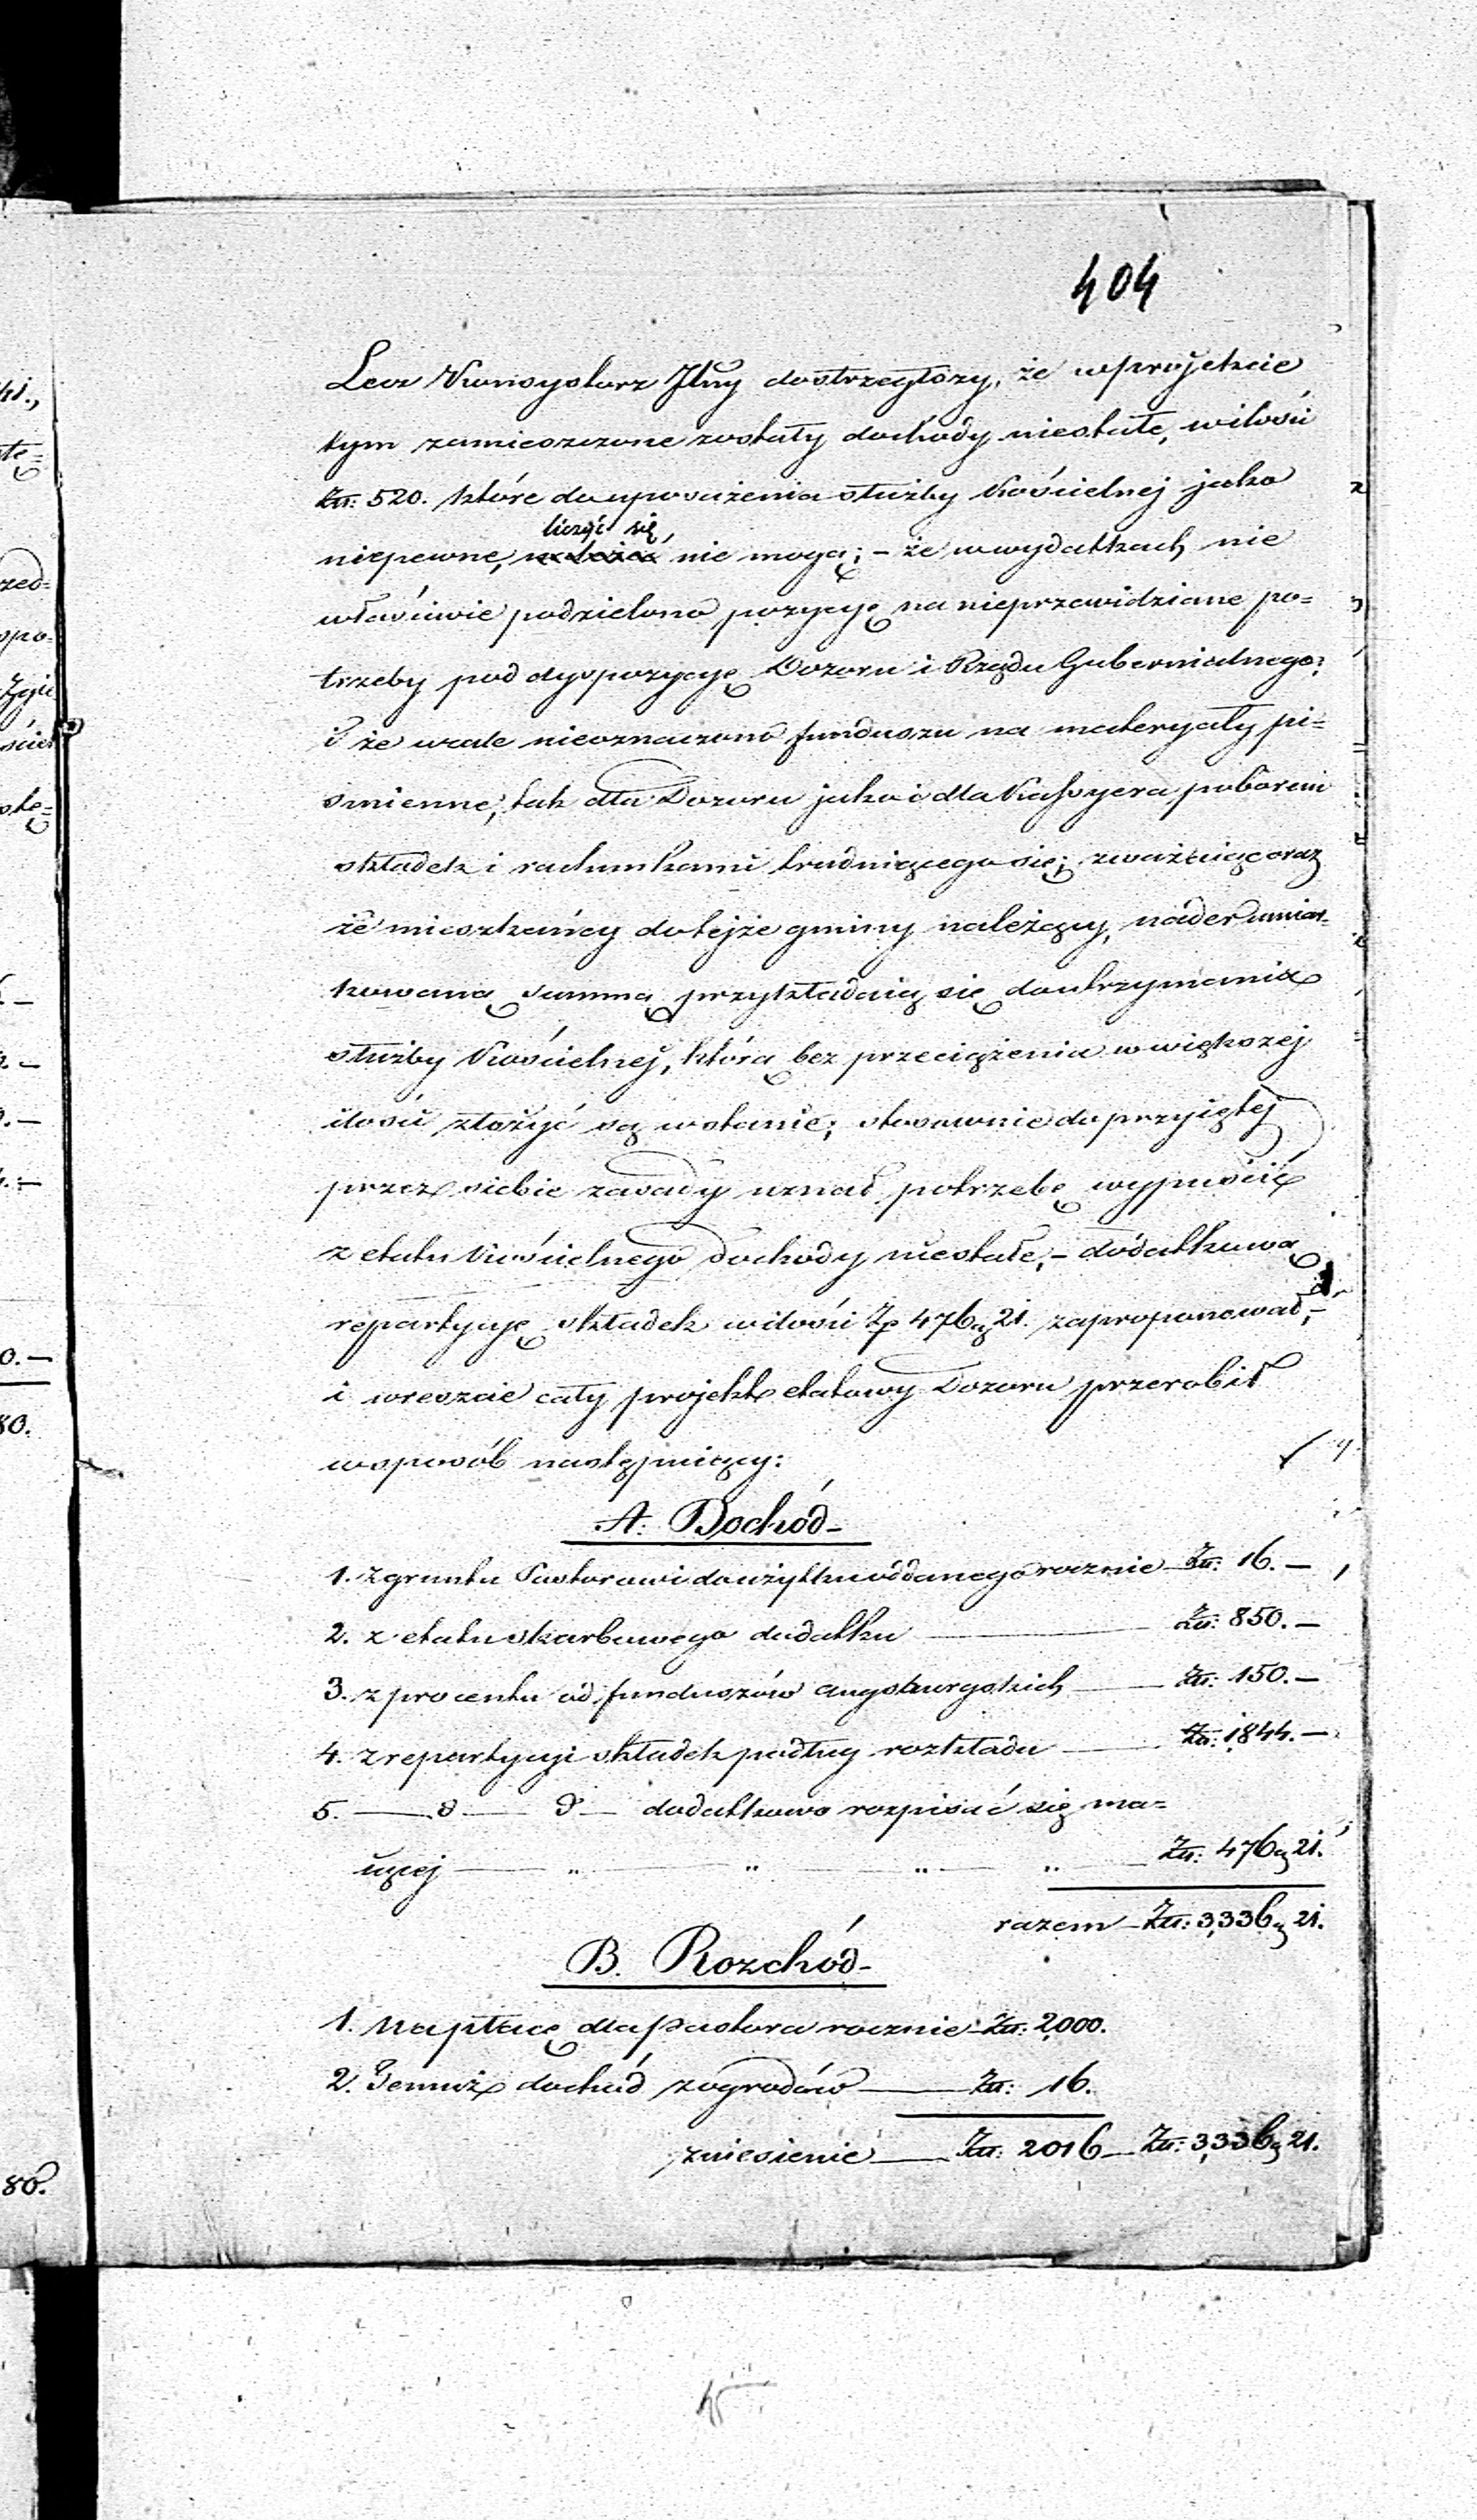 404
Lecz Konsystorz Jlny dostrzegłszy, że w projekcie
tym zamieszczone zostały dochody niestałe, w ilości
Zło: 520. które do uposażenia służby Kościelnej jako
liczyć się
niepewne, należeć nie mogą; – że w wydatkach nie
właściwie podzielono pozycyę na nieprzewidziane po=
trzeby pod dyspozycyę Dozoru i Rządu Gubernialnego;
i że wcale nieoznaczono funduszu na materyały pi=
śmienne, tak dla Dozoru jako i dla Kassyera poborem
składek i rachunkami trudniącego się; zważaiąc oraz
że mieszkańcy do tejże gminy należący, nader umiar=
kowaną summą przykładaią się do utrzymania
służby Kościelnej, którą bez przeciążenia w większej
ilości złożyć są w stanie; stosownie do przyiętej
przez siebie zasady uznał potrzebę wypuścić
z etatu Kościelnego dochody niestałe, – dodatkową
repartycyę składek w ilości Zp 476 g 21. zaproponował, –
i wreszcie cały projekt etatowy Dozoru przerobił
w sposób następuiący:
A. Dochód –
1. Z gruntu Pastorowi do użytku oddanego rocznie Zło: 16. –
2. z etatu skarbowego dodatku Zło: 850. –
3. z procentu od funduszów augsburgskich Zło: 150. –
4. z repartycyi składek podług rozkładu Zło: 1,844. –
5. — d — d — dodatkowo rozpisać się ma=
iącej — " — " — " — " — Zło: 476 g 21.
razem – Zło: 3,336 g 21.
B. Rozchód –
1. Na płacę dla Pastora rocznie – Zło: 2,000.
2. Temuż dochód z ogrodów — Zło: 16.
zniesienie — Zło: 2016 — Zło: 3,336 g 21.